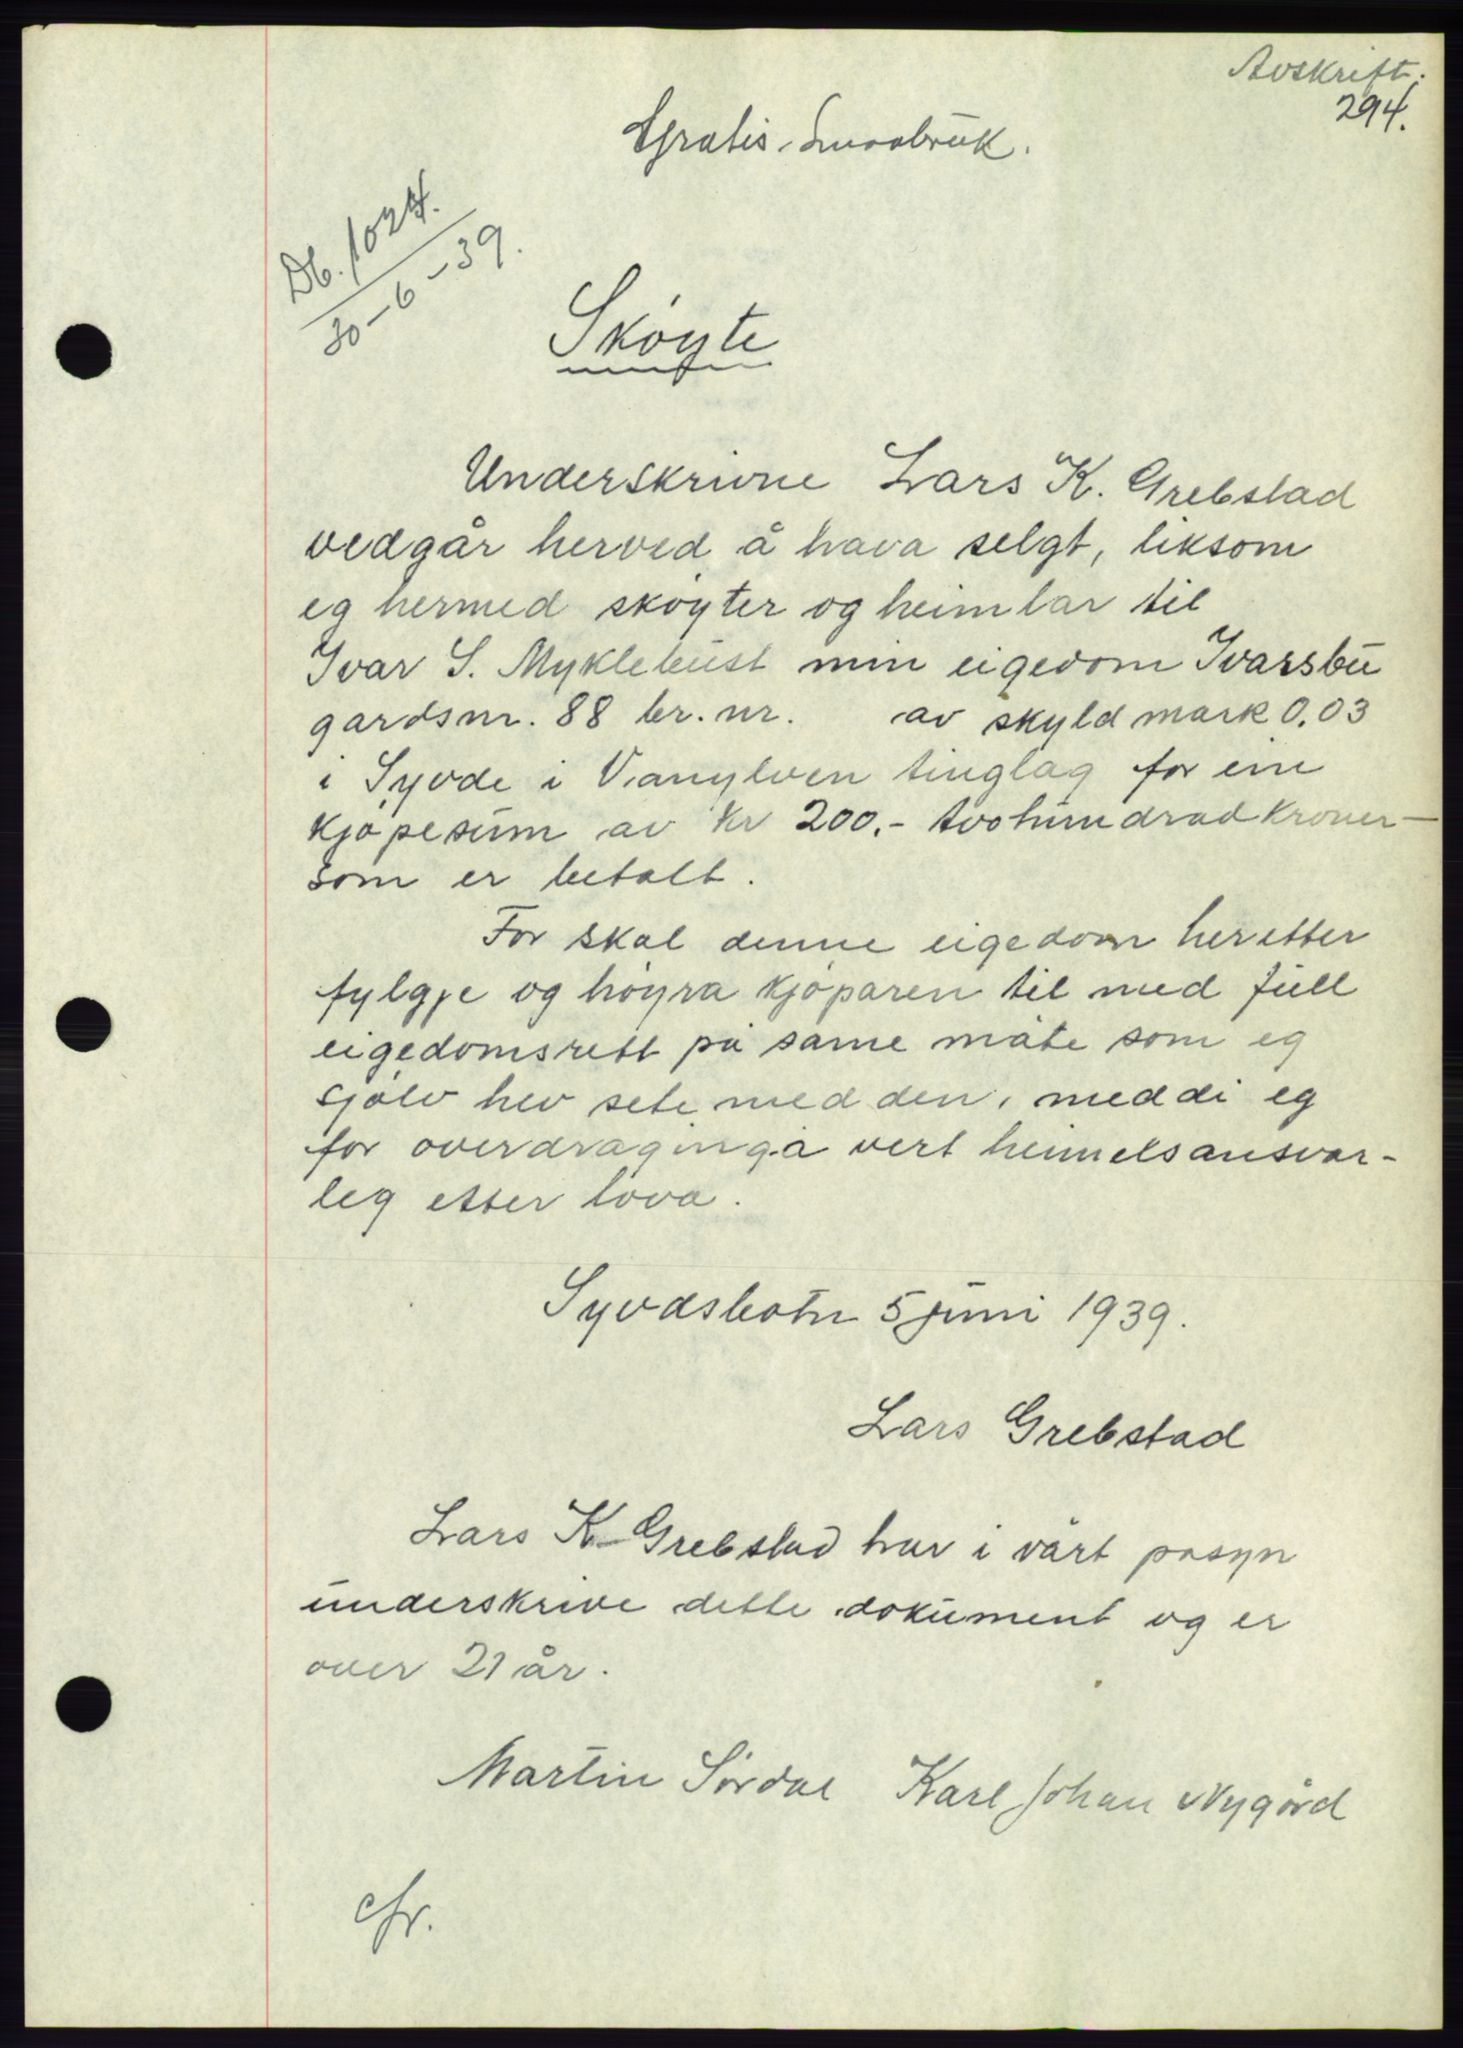 Avskrift.
294.
Gratis. Smaabruk.
Db. 1024.
30-6-39.
Sköyte
Underskrivne Lars K. Grebstad
vedgår herved å hava selgt, liksom
eg hermed sköyter og heimlar til
Ivar S. Myklebust min eigedom Ivarsbu
gardsnr. 88 br. nr. av skyld mark 0.03
i Syvde i Vanylven tinglag for ein
kjöpesum av kr 200.- tvohundrad kroner-
som er betalt.
For skal denne eigedom heretter
fylgje og höyra kjöparen til med full
eigedomsrett på same måte som eg
sjölv hev sete med den, med di eg
for overdraginga vert heimelsansvar-
leg etter lova.
Syvdsbotn 5 juni 1939.
Lars Grebstad
Lars K. Grebstad har i vårt påsyn
underskrive dette dokument og er
over 21 år.
Martin Sördal Karl Johan Nygård